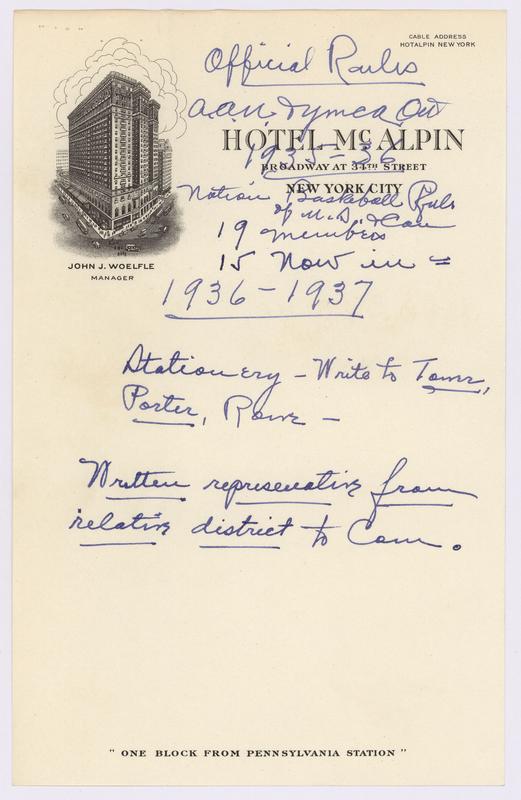 CABLE ADDRESS
HOTALPIN NEW YORK
Official Rules
A.A.U. & YMCA Out
HOTEL MCALPIN
1935-36
BROADWAY AT 34TH STREET
NEW YORK CITY
Nation Basketball Rules
of U.S. & Can
19 members
15 Now in =
1936-1937
JOHN J. WOELFLE
MANAGER
Stationery - Write to Tower,
Porter, Rowe -
Written represenative from
relative district to Com.
" ONE BLOCK FROM PENNSYLVANIA STATION "